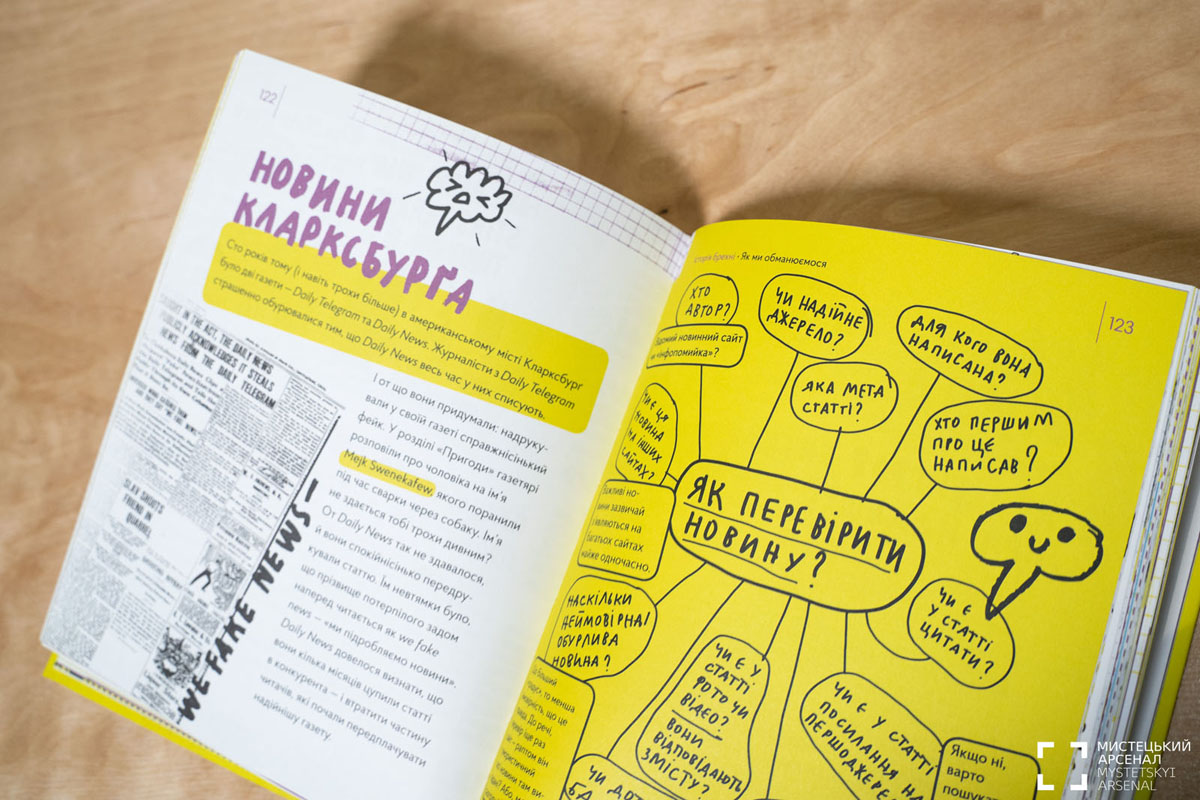 122
НОВИНИ
КЛАРКСБУРҐА
Сто років тому (і навіть трохи більше) в американському місті Кларксбург
було дві газети – Daily Telegram та Daily News. Журналісти з Daily Telegram
страшенно обурювалися тим, що Daily News весь час у них списують.
CAUGHT IN THE ACT, THE DAILY NEWS
PUBLICLY ACKNOWLEDGES IT STEALS
NEWS FROM THE DAILY TELEGRAM
SLAV SHOOTS
FRIEND IN
QUARREL
WE FAKE NEWS –
І от що вони придумали: надруку-
вали у своїй газеті справжнісінький
фейк. У розділі «Пригоди» газетярі
розповіли про чоловіка на ім'я
Mejk Swenekafew, якого поранили
під час сварки через собаку. Ім'я
не здається тобі трохи дивним?
От Daily News так не здавалося,
й вони спокійнісінько передру-
кували статтю. Їм невтямки було,
що прізвище потерпілого задом
наперед читається як we fake
news – «ми підробляємо новини».
Daily News довелося визнати, що
вони кілька місяців цупили статті
в конкурента – і втратити частину
читачів, які почали передплачувати
надійнішу газету.
історія брехні • Як ми обманюємося
123
ХТО
АВТОР?
Відомий новинний сайт
чи «інфопомийка»?
ЧИ НАДІЙНЕ
ДЖЕРЕЛО?
ДЛЯ КОГО ВОНА
НАПИСАНА?
ЯКА МЕТА
СТАТТІ?
ХТО ПЕРШИМ
ПРО ЦЕ
НАПИСАВ?
ЧИ Є ЦЯ
НОВИНА
НА ІНШИХ
САЙТАХ?
Важливі но-
вини зазвичай
з'являються на
багатьох сайтах
майже одночасно.
ЯК ПЕРЕВІРИТИ
НОВИНУ?
НАСКІЛЬКИ
НЕЙМОВІРНА/
ОБУРЛИВА
НОВИНА?
ЧИ Є
У СТАТТІ
ЦИТАТИ?
ЧИ Є У
СТАТТІ
ФОТО ЧИ
ВІДЕО?
ВОНИ
ВІДПОВІДАЮТЬ
ЗМІСТУ?
ЧИ Є У СТАТТІ
ПОСИЛАННЯ НА
ПЕРШОДЖЕРЕ
Якщо ні,
варто
пошука
ЧИ ДОТ
МИСТЕЦЬКИЙ
АРСЕНАЛ
MYSTETSKYI
ARSENAL